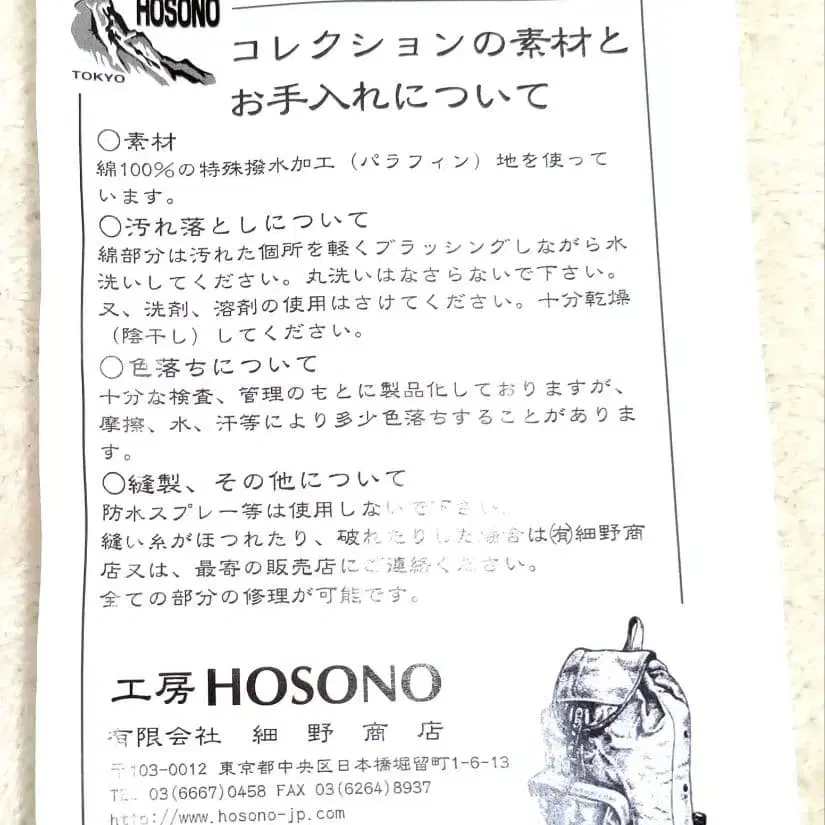 HOSONO
TOKYO
コレクションの素材と
お手入れについて
○素材
綿100%の特殊撥水加工（パラフィン）地を使って
います。
○汚れ落としについて
綿部分は汚れた個所を軽くブラッシングしながら水
洗いしてください。丸洗いはなさらないで下さい。
又、洗剤、溶剤の使用はさけてください。十分乾燥
（陰干し）してください。
○色落ちについて
十分な検査、管理のもとに製品化しておりますが、
摩擦、水、汗等により多少色落ちすることがありま
す。
○縫製、その他について
防水スプレー等は使用しないで下さい。
縫い糸がほつれたり、破れたりした場合は㈲細野商
店又は、最寄の販売店にご連絡ください。
全ての部分の修理が可能です。
工房HOSONO
有限会社 細野商店
〒103-0012 東京都中央区日本橋堀留町1-6-13
TEL 03(6667)0458 FAX 03(6264)8937
http://www.hosono-jp.com